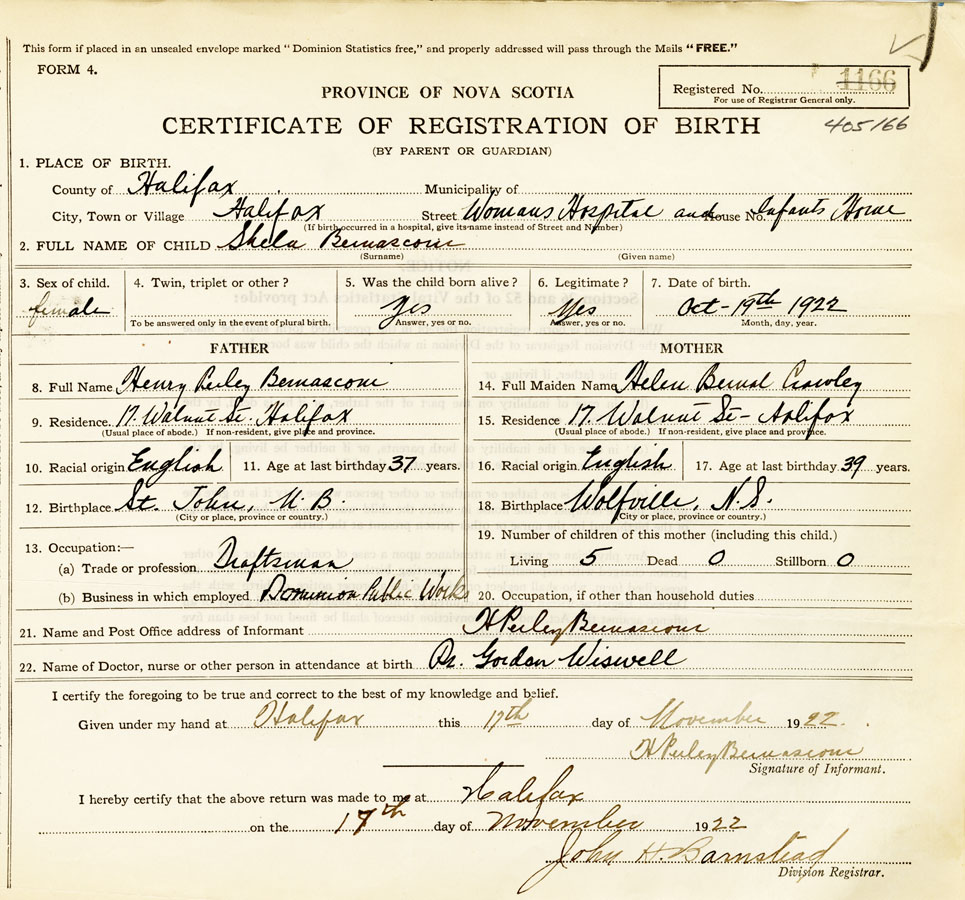 This form if placed in an unsealed envelope marked "Dominion Statistics free," and properly addressed will pass through the Mails "FREE."
FORM 4.
PROVINCE OF NOVA SCOTIA
Registered No. 1166
For use of Registrar General only.
CERTIFICATE OF REGISTRATION OF BIRTH
405166
(BY PARENT OR GUARDIAN)
1. PLACE OF BIRTH.
County of Halifax Municipality of
City, Town or Village Halifax Street Womans Hospital and House No. Infants Home
(If birth occurred in a hospital, give its name instead of Street and Number)
2. FULL NAME OF CHILD Shela Bernasconi
(Surname) (Given name)
3. Sex of child. 4. Twin, triplet or other? 5. Was the child born alive? 6. Legitimate? 7. Date of birth.
female Yes Yes Oct - 19th 1922
To be answered only in the event of plural birth. Answer, yes or no. Answer, yes or no. Month, day, year.
FATHER MOTHER
8. Full Name Henry Perley Bernasconi 14. Full Maiden Name Helen Bernal Crowley
9. Residence. 17. Walnut St. Halifax 15. Residence 17. Walnut St - Halifax
(Usual place of abode.) If non-resident, give place and province. (Usual place of abode.) If non-resident, give place and province.
10. Racial origin English 11. Age at last birthday 37 years. 16. Racial origin English 17. Age at last birthday 39 years.
12. Birthplace St. John, N.B. 18. Birthplace Wolfville, N.S.
(City or place, province or country.) (City or place, province or country.)
19. Number of children of this mother (including this child.)
13. Occupation:—
(a) Trade or profession Draftsman Living 5 Dead 0 Stillborn 0
(b) Business in which employed Dominion Public Works 20. Occupation, if other than household duties
21. Name and Post Office address of Informant H Perley Bernasconi
22. Name of Doctor, nurse or other person in attendance at birth Dr. Gordan Wiswell
I certify the foregoing to be true and correct to the best of my knowledge and belief.
Given under my hand at Halifax this 17th day of November 1922.
H Perley Bernasconi
Signature of Informant.
I hereby certify that the above return was made to me at Halifax
on the 17th day of November 1922
John H. Barnstead
Division Registrar.